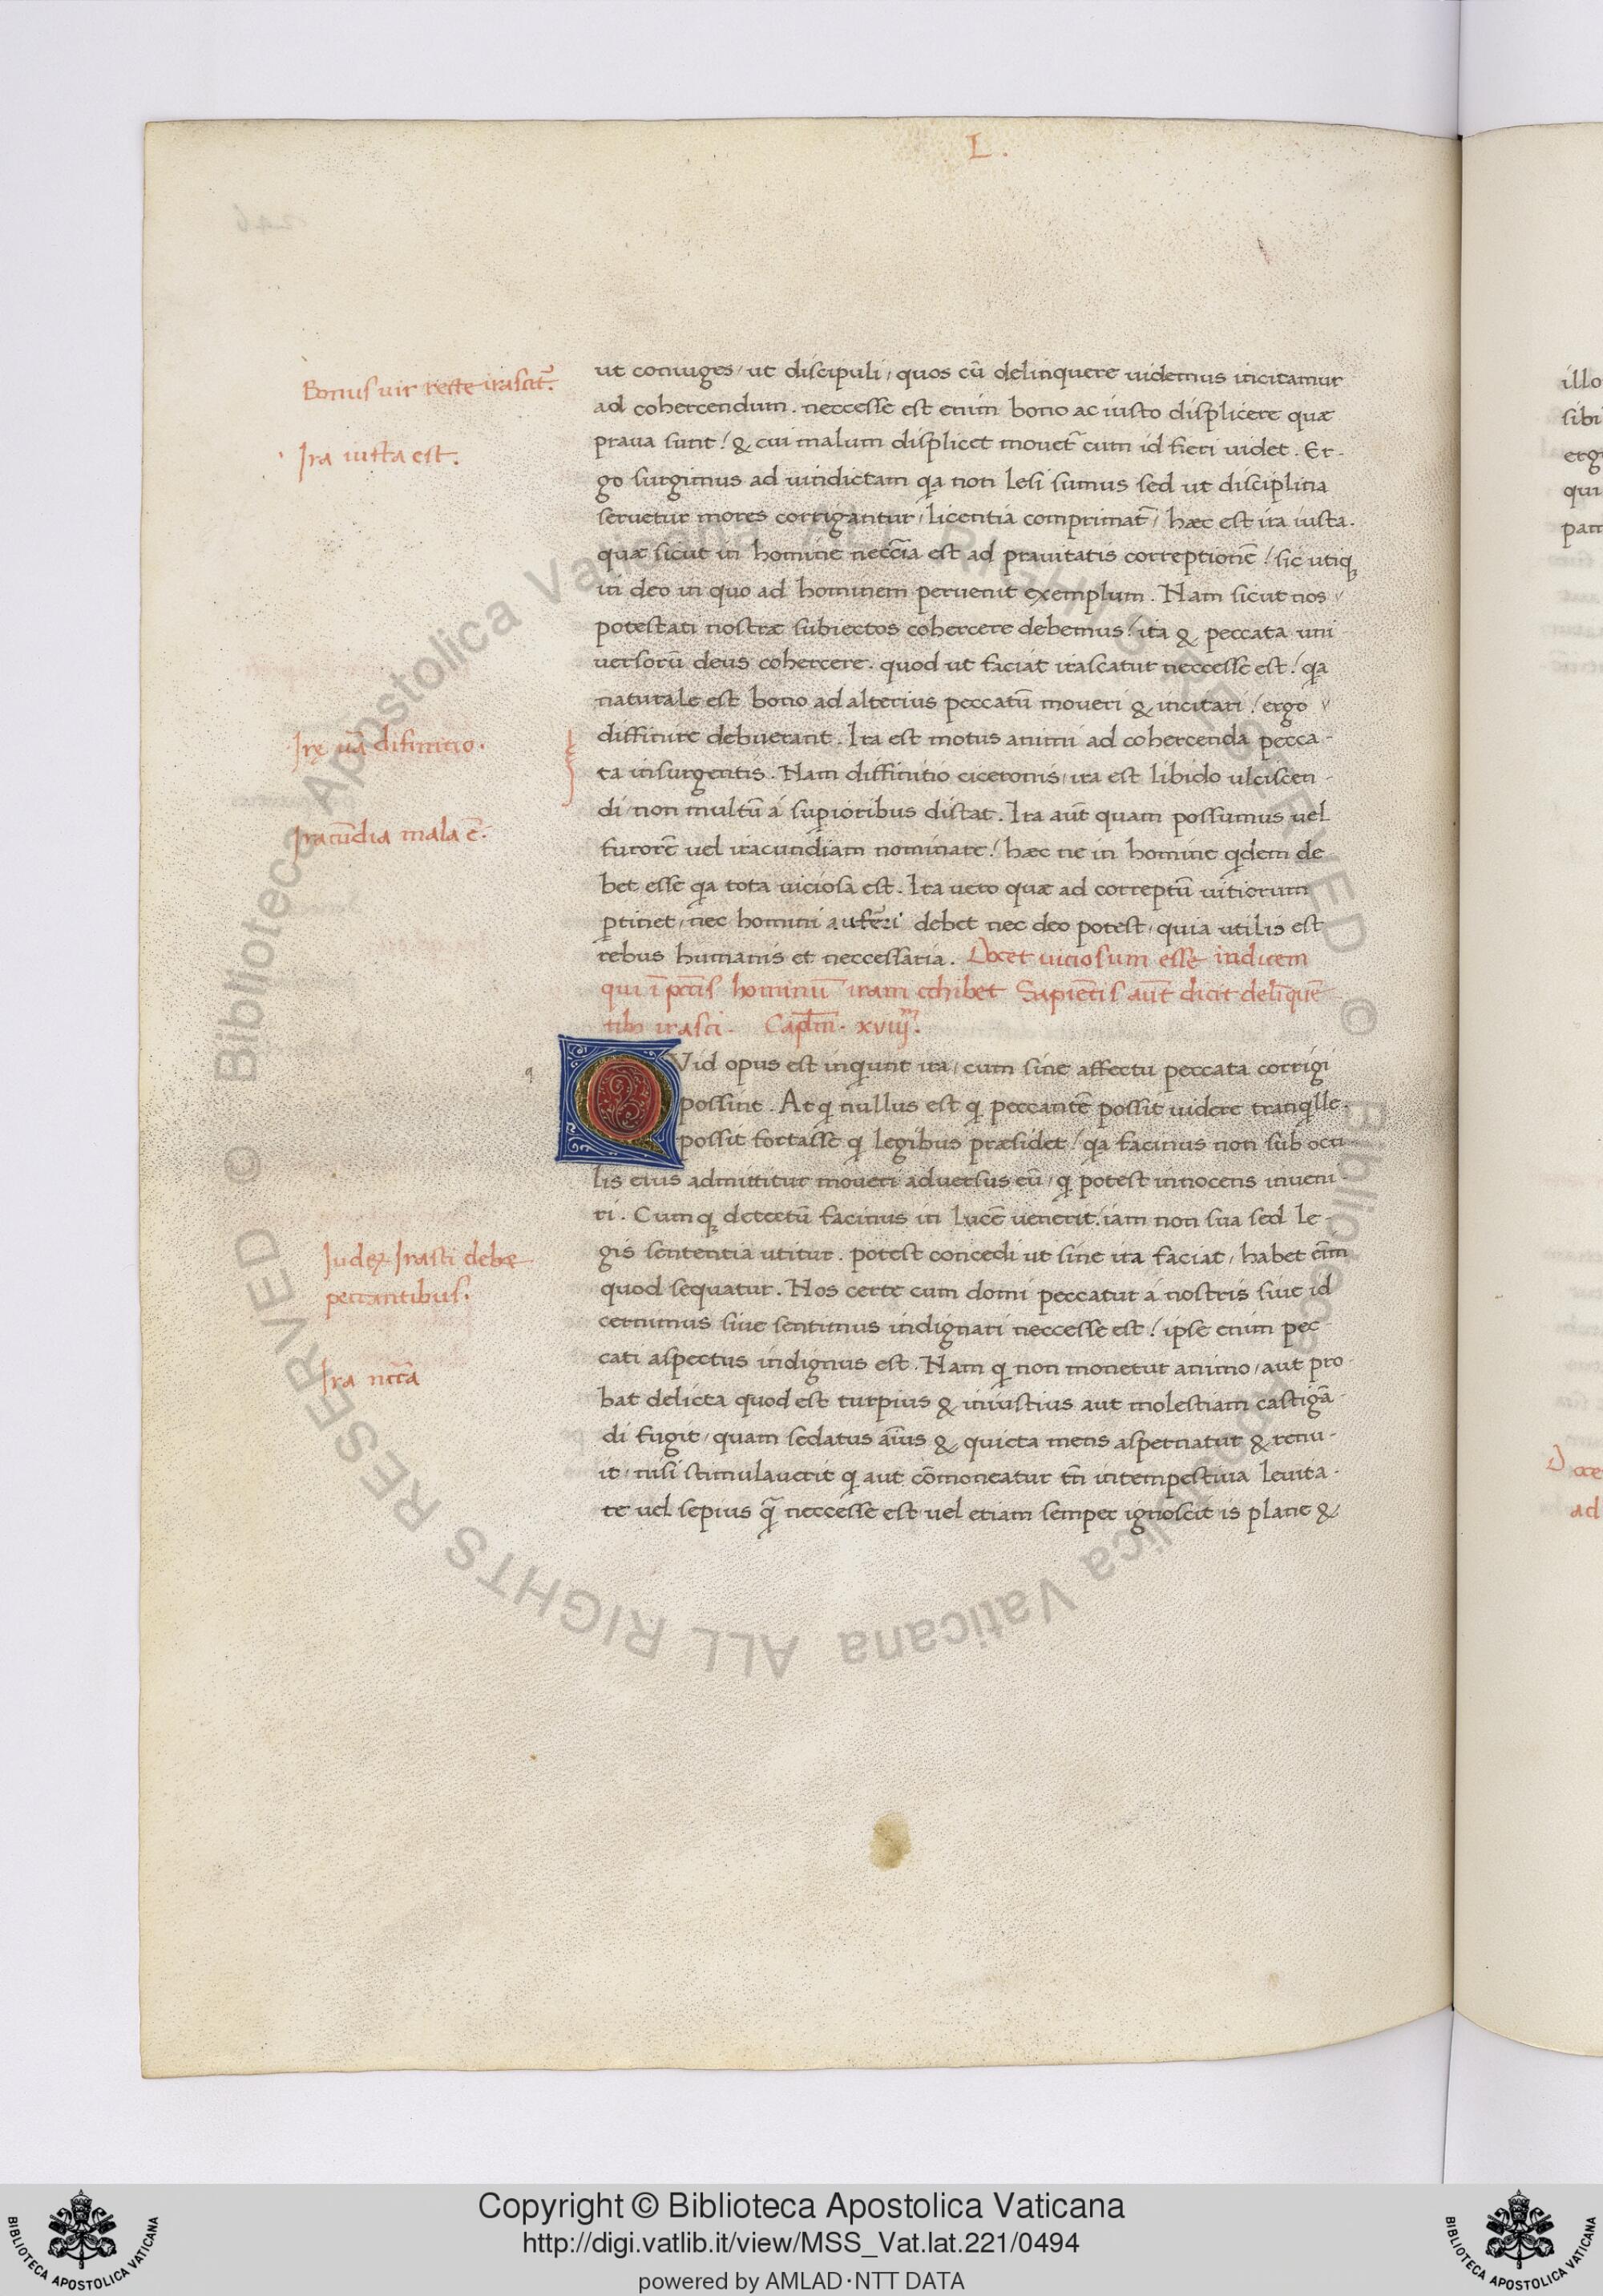 L.
ut coniuges, ut discipuli, quos cū delinquere uidemus incitamur
ad cohercendum. neccesse est enim bono ac iusto displicere quæ
praua sunt! & cui malum displicet mouet᷑ cum id fieri uidet. Er-
go surgimus ad uindictam qa non lesi sumus sed ut disciplina
seruetur mores corrigantur, licentia comprimat᷑, hæc est ira iusta.
quæ sicut in homine neccīa est ad prauitatis correptionē! sic utiqꝫ
in deo in quo ad hominem peruenit exemplum. Nam sicut nos
potestati nostræ subiectos cohercere debemus! ita & peccata uni
uersorū deus cohercere. quod ut faciat irascatur neccesse est! qa
naturale est bono ad alterius peccatū moueri & incitari! ergo
diffinire debuerant. Ira est motus animi ad cohercenda pecca-
ta insurgentis. Nam diffinitio ciceronis, ira est libido ulciscen-
di, non multū á supioribus distat. Ira aūt quam possumus uel
furorē uel iracundiam nominare! hæc ne in homine qdem de
bet esse qa tota uiciosa est. Ira uero quæ ad correptū uitiorum
ꝑtinet, nec homini auferri debet nec deo potest, quia utilis est
rebus humanis et neccessaria. Docet uiciosum esse iudicem
qui ī pctīs hominū iram cohibet Sapientis aūt dicit delīquē
tibꝫ irasci. Capłm. xviiiͫ.
QVid opus est inquiunt ira, cum sine affectu peccata corrigi
possint. At qi nullus est qi peccantē possit uidere tranqille.
possit fortasse qi legibus præsidet! qa facinus non sub ocu
lis eius admittitur moueri aduersus eū, qi potest innocens inueni
ri. Cumqꝫ detectū facinus in lucē uenerit. iam non sua sed le-
gis sententia utitur. potest concedi ut sine ira faciat, habet eīm
quod sequatur. Nos certe cum domi peccatur á nostris siue id
cernimus siue sentimus indignari neccesse est! ipse enim pec-
cati aspectus indignus est. Nam qi non monetur animo, aut pro-
bat delicta quod est turpius & iniustius aut molestiam castigā-
di fugit, quam sedatus aīus & quieta mens aspernatur & renu-
it, nisi stimulauerit qi aut cōmoneatur tn̄ intempestiua leuita-
te uel sepius q̄ neccesse est uel etiam semper ignoscit is plane &
Bonus uir recte irascit᷑.
Ira iusta est.
Irę uā difinitio.
Iracūdia mala ē.
q
Iudex Irasci debꝫ
peccantibus.
Ira nccā
illo
sibi
erg
qui
Doce
ad
© Biblioteca Apostolica Vaticana ALL RIGHTS RESERVED © Biblioteca Apostolica Vaticana ALL RIGHTS RESERVED
BIBLIOTECA APOSTOLICA VATICANA
Copyright © Biblioteca Apostolica Vaticana
http://digi.vatlib.it/view/MSS_Vat.lat.221/0494
powered by AMLAD·NTT DATA
BIBLIOTECA APOSTOLICA VATICANA